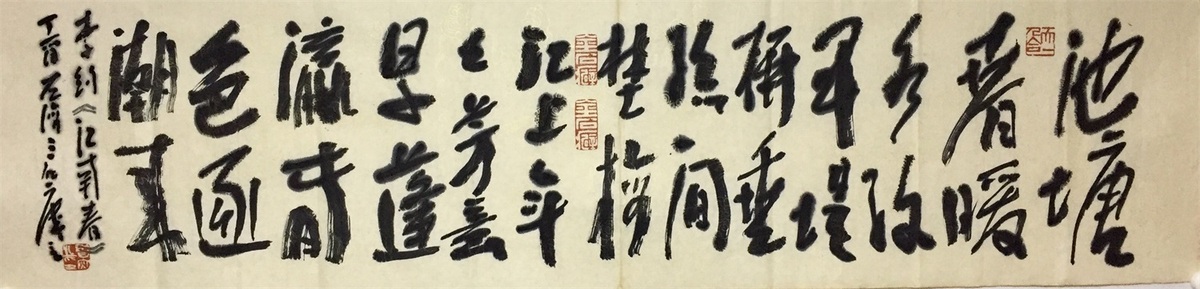 池塘
春暖
水纹
开堤
柳垂
丝间
埜梅
江上年
々芳意
早蓬
瀛春
色逐
潮来
李约《江南春》
丁酉